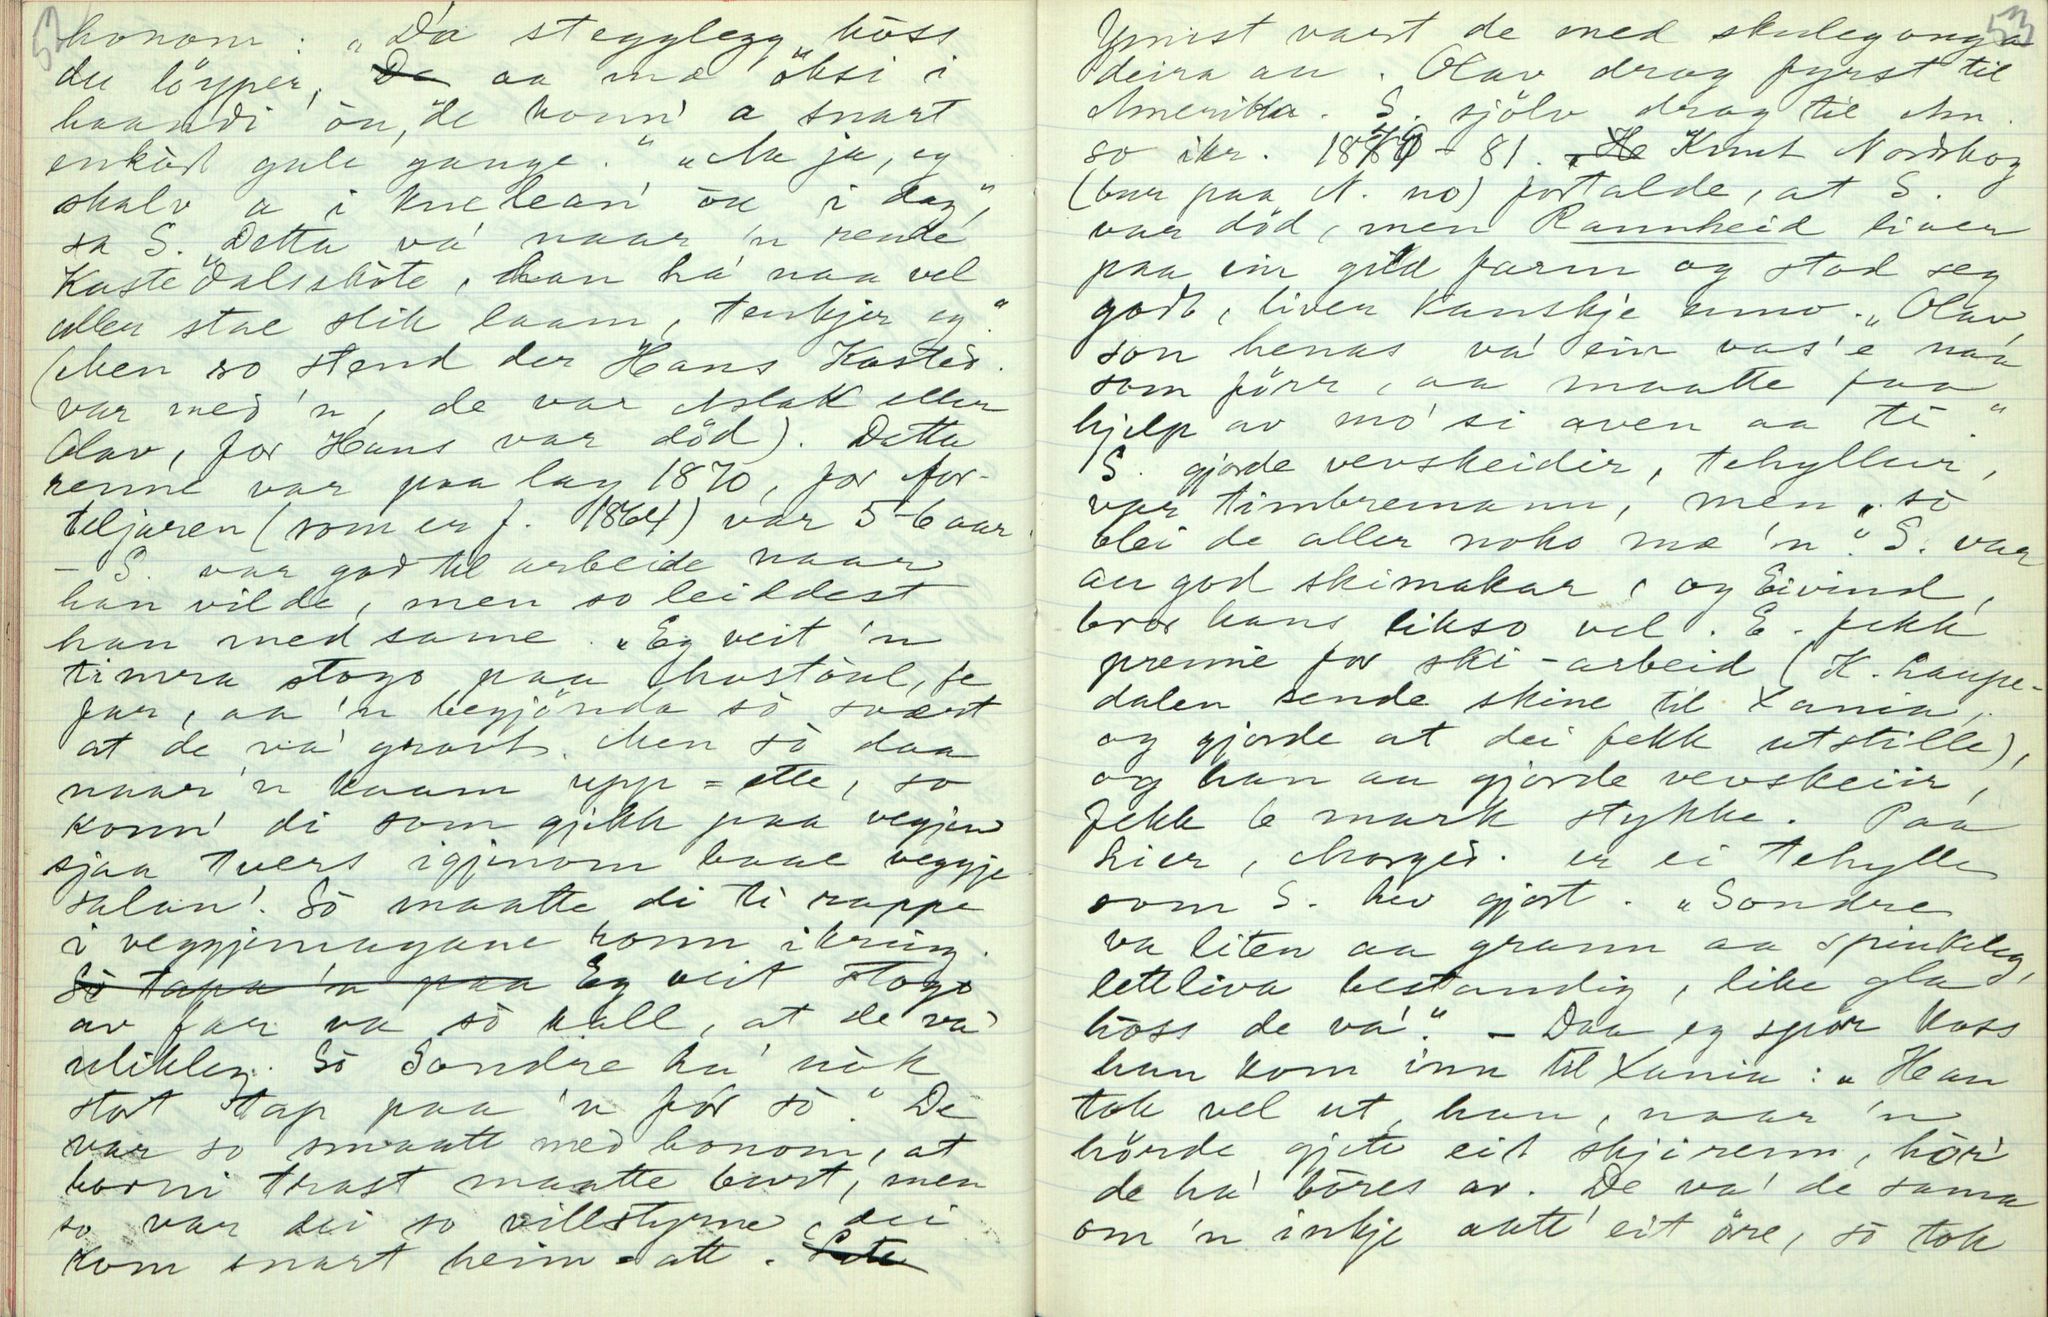 52
honom: „Da' stegglegg høss
du löyper, De aa mæ öksi i
haandi òu, de konn' a snart
enkòrt gale gange." „Aa ja, eg
skalv a i knelean' òu i dag",
sa S. „Detta va' naar 'n rende
Kastedalsskòte, han ha' naa vel
aller stae slik laam, tenkjer eg."
(Men so stend der Hans Kasted.
var med 'n, de var Aslak eller
Olav, for Hans var död). Detta
renne var paa lag 1870, for for-
teljaren (som er f. 1864) var 5-6 aar.
– S. var god til arbeide naar
han vilde, men so leiddest
han med same. „Eg veit 'n
timra stogo paa , te
far, aa 'n begjönda sò svært
at de va' gravt. Men sò daa
naar 'n kaam upp=ette, so
konn' di som gjikk paa vegjen
sjaa tvers igjenom baae veggje-
salan'. Sò maatte di te rappe
i veggjemagane romm ikring.
Sò tapa 'n paa Eg veit stogo
av far va sò kall, at de va'
ulikleg. Sò Sondre ha' nòk
stort tap paa 'n fòr sò." De
var so smaatt med honom, at
borni trast maatte burt, men
so var dei so villstyrne, dei
kom snart heim=att.
53
Ymist vart de med skulegonga
deira au. Olav drog fyrst til
Amerika. S. sjölv drog til Am.
so ikr. 1880-81. He Knut Nordbog
(bur paa N. no) fortalde, at S.
var död, men Rannheid liver
paa ein gild farm og stod seg
godt, liver kanskje enno. „Olav,
son henas va' ein vas'e naa
som förr, aa maatte faa
hjelp av mo' si aven aa te."
S. gjorde vevskeider, tehyller,
var timbremann, men „sò
blei de aller noko mæ 'n". S. var
au god skimakar, og Eivind,
bror hans likso vel. E. fekk
premie for ski-arbeid (K. Laupe-
dalen sende skine til Xania,
og gjorde at dei fekk utstille),
og han au gjorde vevskeiir,
fekk 6 mark stykke. Paa
Lier, Morged. er ei tehylle
som S. hev gjort. „Sondre
va liten aa grann aa spinkeleg,
lettliva bestandig, like gla
hòss de va'." – Daa eg spor koss
han kom inn til Xania: „Han
tok vel ut, han, naar 'n
hörde gjete eit skjirenn, hòr'
de ha' böres av. De va' de sama
om 'n inkje aatt' eit öre, sò tok